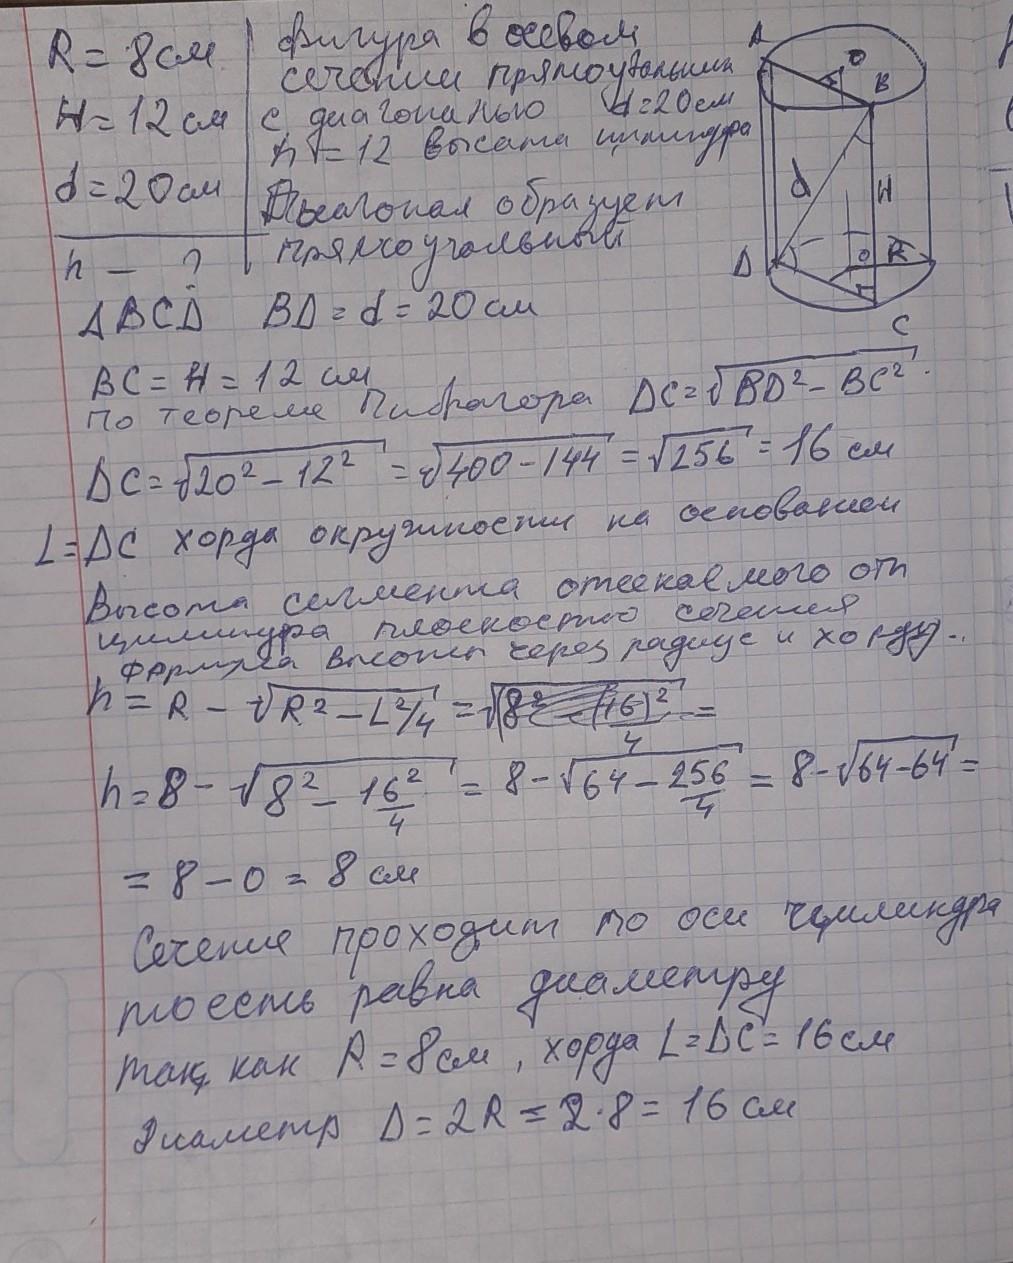 R = 8 см
H = 12 см
d = 20 см
h — ?
фигура в осевом
сечении прямоугольник
с диагональю d = 20 см
h = 12 высота цилиндра
Диагонал образует
прямоугольный
ABCD BD = d = 20 см
BC = H = 12 см
По теореме Пифагора DC = √BD² − BC²
DC = √20² − 12² = √400 − 144 = √256 = 16 см
L = DC хорда окружности на основании
Высота сегмента отсекаемого от
цилиндра плоскостью сечения
Формула высоты через радиус и хорду..
h = R − √R² − L²/4 =
h = 8 − √8² − 16²/4 = 8 − √64 − 256/4 = 8 − √64 − 64 =
= 8 − 0 = 8 см
Сечение проходит по оси цилиндра
тоесть равна диаметру
так как R = 8 см, хорда L = DC = 16 см
Диаметр D = 2R = 2 · 8 = 16 см
A
O
B
d
H
D
O
R
C